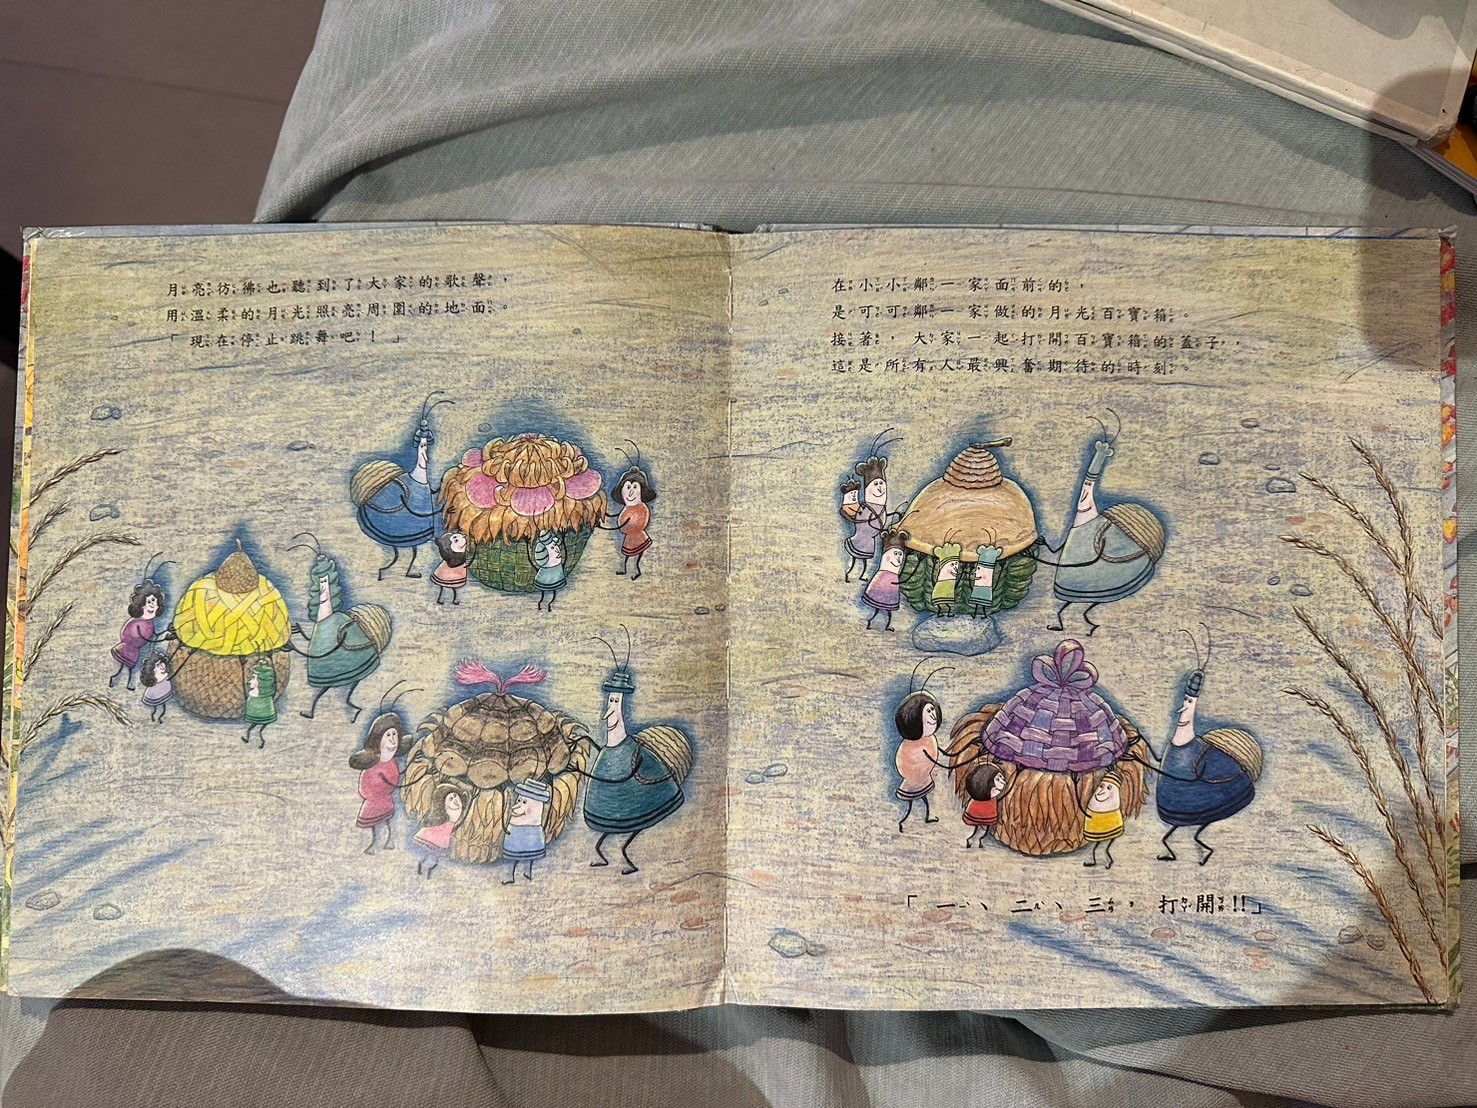 月亮彷彿也聽到了大家的歌聲，
用溫柔的月光照亮周圍的地面。
「現在停止跳舞吧！」
在小小鄰一家面前的，
是可可鄰一家做的月光百寶箱。
接著，大家一起打開百寶箱的蓋子，
這是所有人最興奮期待的時刻。
「一、二、三，打開!!」